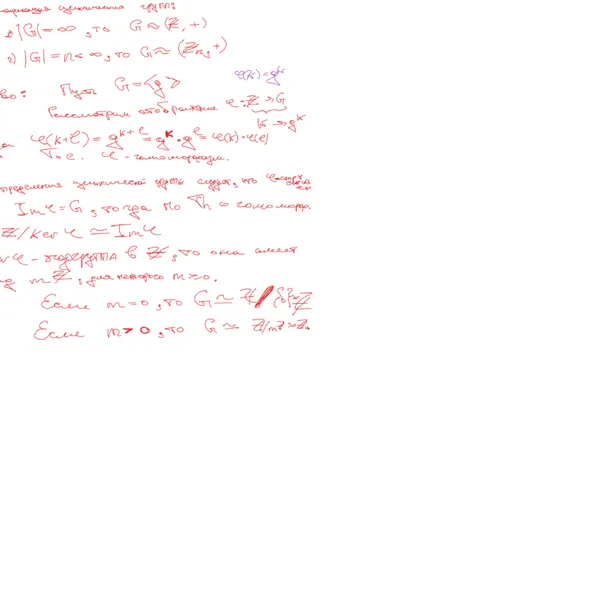 циклических групп:
1) |G| = ∞, то G ≈ (Z, +)
2) |G| = n < ∞, то G ≈ (Zn, +)
φ(k) = g^k
во: Пусть G = <g>
Рассмотрим отображение φ: Z → G
k → g^k
φ(k+l) = g^{k+l} = g^k · g^l = φ(k)·φ(l)
Т.е. φ - гомоморфизм.
определения циклической группы следует, что
Im φ = G, тогда по Th о гомоморф.
Z/Ker φ ≃ Im φ
er φ - подгруппа в Z, то она имеет
mZ, для некоторого m ≥ 0.
Если m = 0, то G ≃ Z/{0} ≃ Z
Если m > 0, то G ≃ Z/mZ ≃ Z